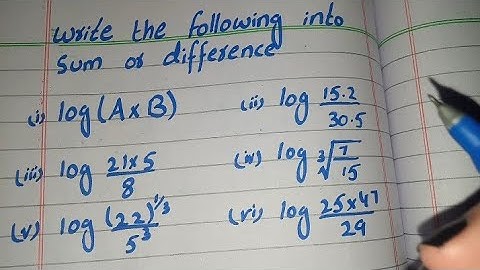 Write the following into
Sum or difference
(i) log(A×B) (ii) log 15.2/30.5
(iii) log 21×5/8 (iv) log ∛(7/15)
(v) log (22)^1/3/5^3 (vi) log 25×47/29